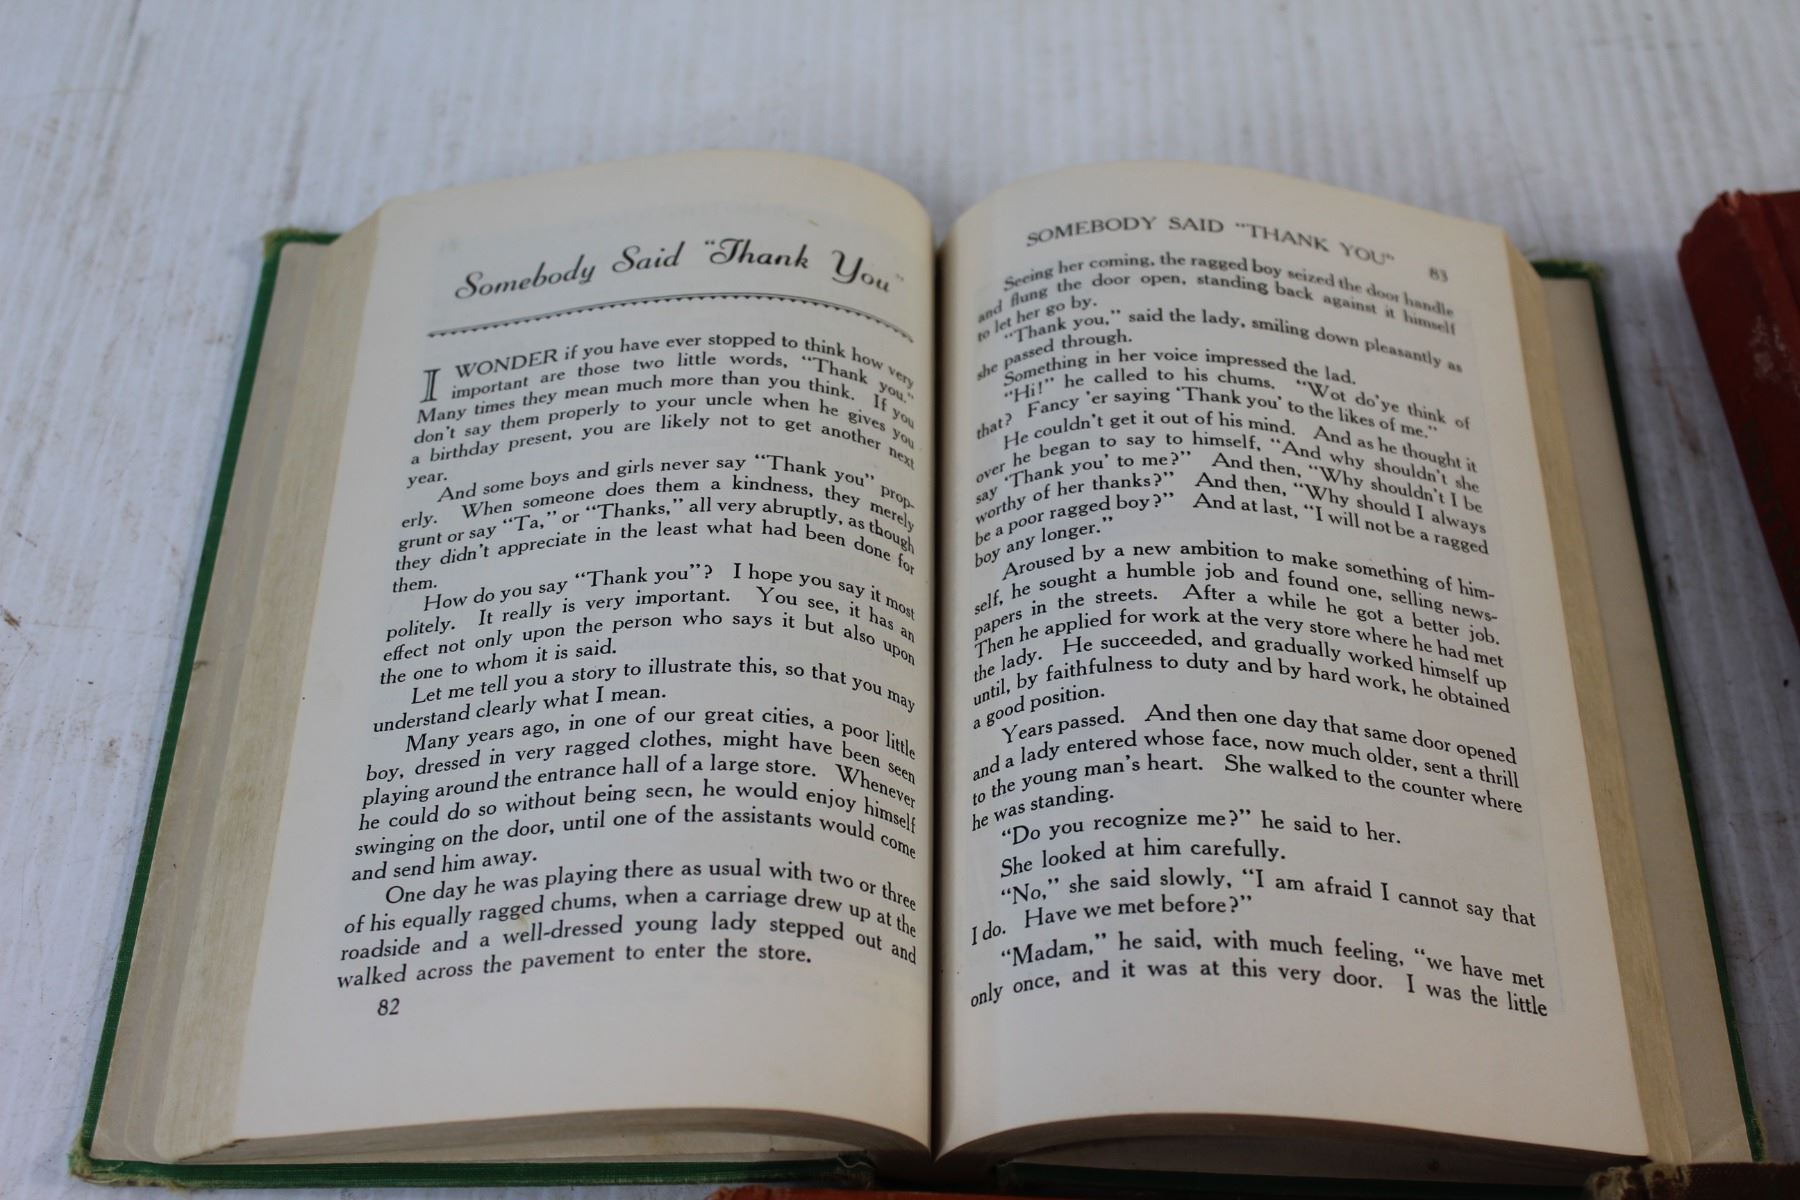 Somebody Said "Thank You"
I WONDER if you have ever stopped to think how very
important are those two little words, "Thank you."
Many times they mean much more than you think. If you
don't say them properly to your uncle when he gives you
a birthday present, you are likely not to get another next
year.
And some boys and girls never say "Thank you" prop-
erly. When someone does them a kindness, they merely
grunt or say "Ta," or "Thanks," all very abruptly, as though
they didn't appreciate in the least what had been done for
them.
How do you say "Thank you"? I hope you say it most
politely. It really is very important. You see, it has an
effect not only upon the person who says it but also upon
the one to whom it is said.
Let me tell you a story to illustrate this, so that you may
understand clearly what I mean.
Many years ago, in one of our great cities, a poor little
boy, dressed in very ragged clothes, might have been seen
playing around the entrance hall of a large store. Whenever
he could do so without being seen, he would enjoy himself
swinging on the door, until one of the assistants would come
and send him away.
One day he was playing there as usual with two or three
of his equally ragged chums, when a carriage drew up at the
roadside and a well-dressed young lady stepped out and
walked across the pavement to enter the store.
82
SOMEBODY SAID "THANK YOU" 83
Seeing her coming, the ragged boy seized the door handle
and flung the door open, standing back against it himself
to let her go by.
"Thank you," said the lady, smiling down pleasantly as
she passed through.
Something in her voice impressed the lad.
"Hi!" he called to his chums. "Wot do'ye think of
that? Fancy 'er saying 'Thank you' to the likes of me."
He couldn't get it out of his mind. And as he thought it
over he began to say to himself, "And why shouldn't she
say 'Thank you' to me?" And then, "Why shouldn't I be
worthy of her thanks?" And then, "Why should I always
be a poor ragged boy?" And at last, "I will not be a ragged
boy any longer."
Aroused by a new ambition to make something of him-
self, he sought a humble job and found one, selling news-
papers in the streets. After a while he got a better job.
Then he applied for work at the very store where he had met
the lady. He succeeded, and gradually worked himself up
until, by faithfulness to duty and by hard work, he obtained
a good position.
Years passed. And then one day that same door opened
and a lady entered whose face, now much older, sent a thrill
to the young man's heart. She walked to the counter where
he was standing.
"Do you recognize me?" he said to her.
She looked at him carefully.
"No," she said slowly, "I am afraid I cannot say that
I do. Have we met before?"
"Madam," he said, with much feeling, "we have met
only once, and it was at this very door. I was the little